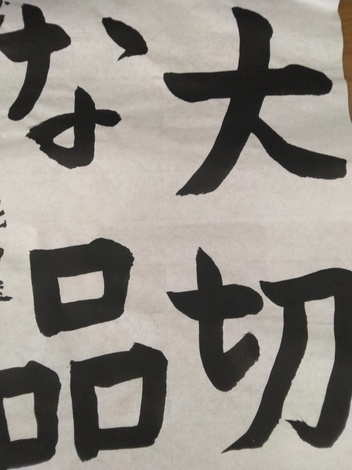 大切
な品